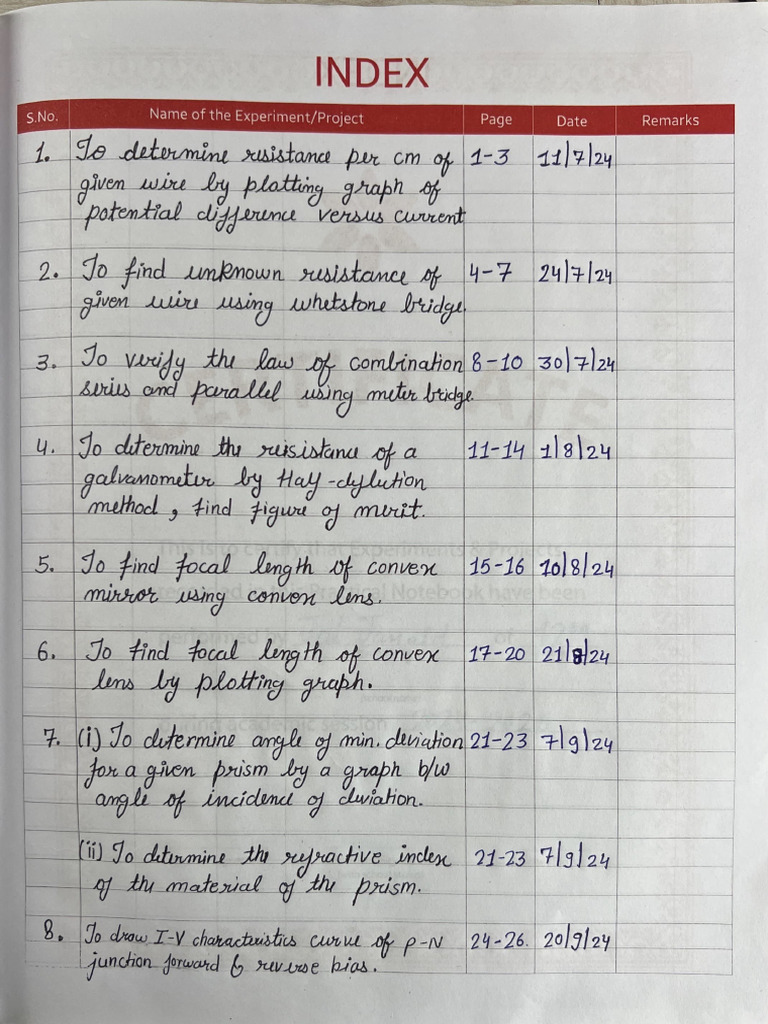 INDEX
S.No. Name of the Experiment/Project Page Date Remarks
1. To determine resistance per cm of 1-3 11/7/24
given wire by plotting graph of
potential difference versus current
2. To find unknown resistance of 4-7 24/7/24
given wire using whetstone bridge.
3. To verify the law of combination 8-10 30/7/24
series and parallel using meter bridge.
4. To determine the reisistance of a 11-14 1/8/24
galvanometer by Half-dylution
method, find figure of merit.
5. To find focal length of convex 15-16 10/8/24
mirror using convex lens.
6. To find focal length of convex 17-20 21/8/24
lens by plotting graph.
7. (i) To determine angle of min. deviation 21-23 7/9/24
for a given prism by a graph b/w
angle of incidence of deviation.
(ii) To determine the refractive index 21-23 7/9/24
of the material of the prism.
8. To draw I-V characteristics curve of P-N 24-26. 20/9/24
junction forward & reverse bias.